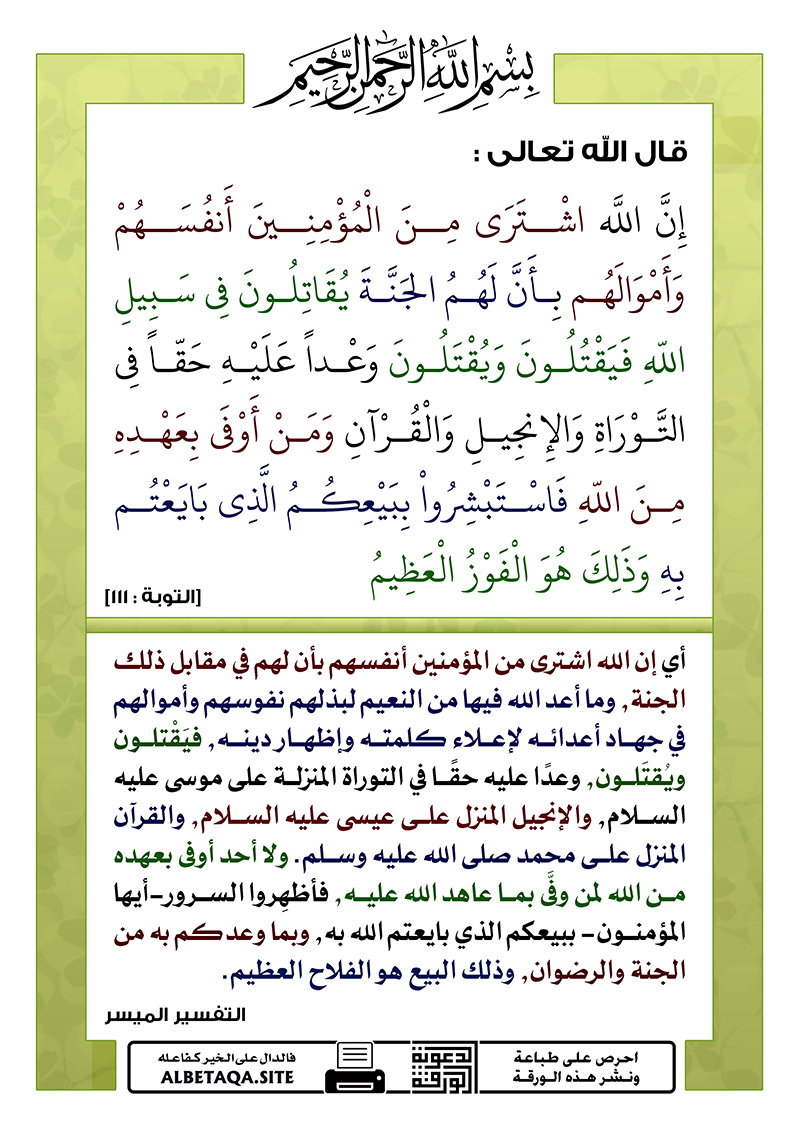 بِسْمِ اللَّهِ الرَّحْمَنِ الرَّحِيمِ
قال الله تعالى :
إِنَّ اللَّهَ اشْتَرَى مِنَ الْمُؤْمِنِينَ أَنفُسَهُمْ
وَأَمْوَالَهُم بِأَنَّ لَهُمُ الجَنَّةَ يُقَاتِلُونَ فِي سَبِيلِ
اللّهِ فَيَقْتُلُونَ وَيُقْتَلُونَ وَعْداً عَلَيْهِ حَقّاً فِي
التَّوْرَاةِ وَالإِنجِيلِ وَالْقُرْآنِ وَمَنْ أَوْفَى بِعَهْدِهِ
مِنَ اللّهِ فَاسْتَبْشِرُواْ بِبَيْعِكُمُ الَّذِي بَايَعْتُم
بِهِ وَذَلِكَ هُوَ الْفَوْزُ الْعَظِيمُ
[التوبة : 111]
أي إن الله اشترى من المؤمنين أنفسهم بأن لهم في مقابل ذلك
الجنة, وما أعد الله فيها من النعيم لبذلهم نفوسهم وأموالهم
في جهاد أعدائه لإعلاء كلمته وإظهار دينه, فيَقْتلون
ويُقتَلون, وعدًا عليه حقًا في التوراة المنزلة على موسى عليه
السلام, والإنجيل المنزل على عيسى عليه السلام, والقرآن
المنزل على محمد صلى الله عليه وسلم. ولا أحد أوفى بعهده
من الله لمن وفَّى بما عاهد الله عليه, فأظهِروا السرور-أيها
المؤمنون- ببيعكم الذي بايعتم الله به, وبما وعدكم به من
الجنة والرضوان, وذلك البيع هو الفلاح العظيم.
التفسير الميسر
احرص على طباعة
ونشر هذه الورقة
الدعوية
الورقة
فالدال على الخير كفاعله
ALBETAQA.SITE